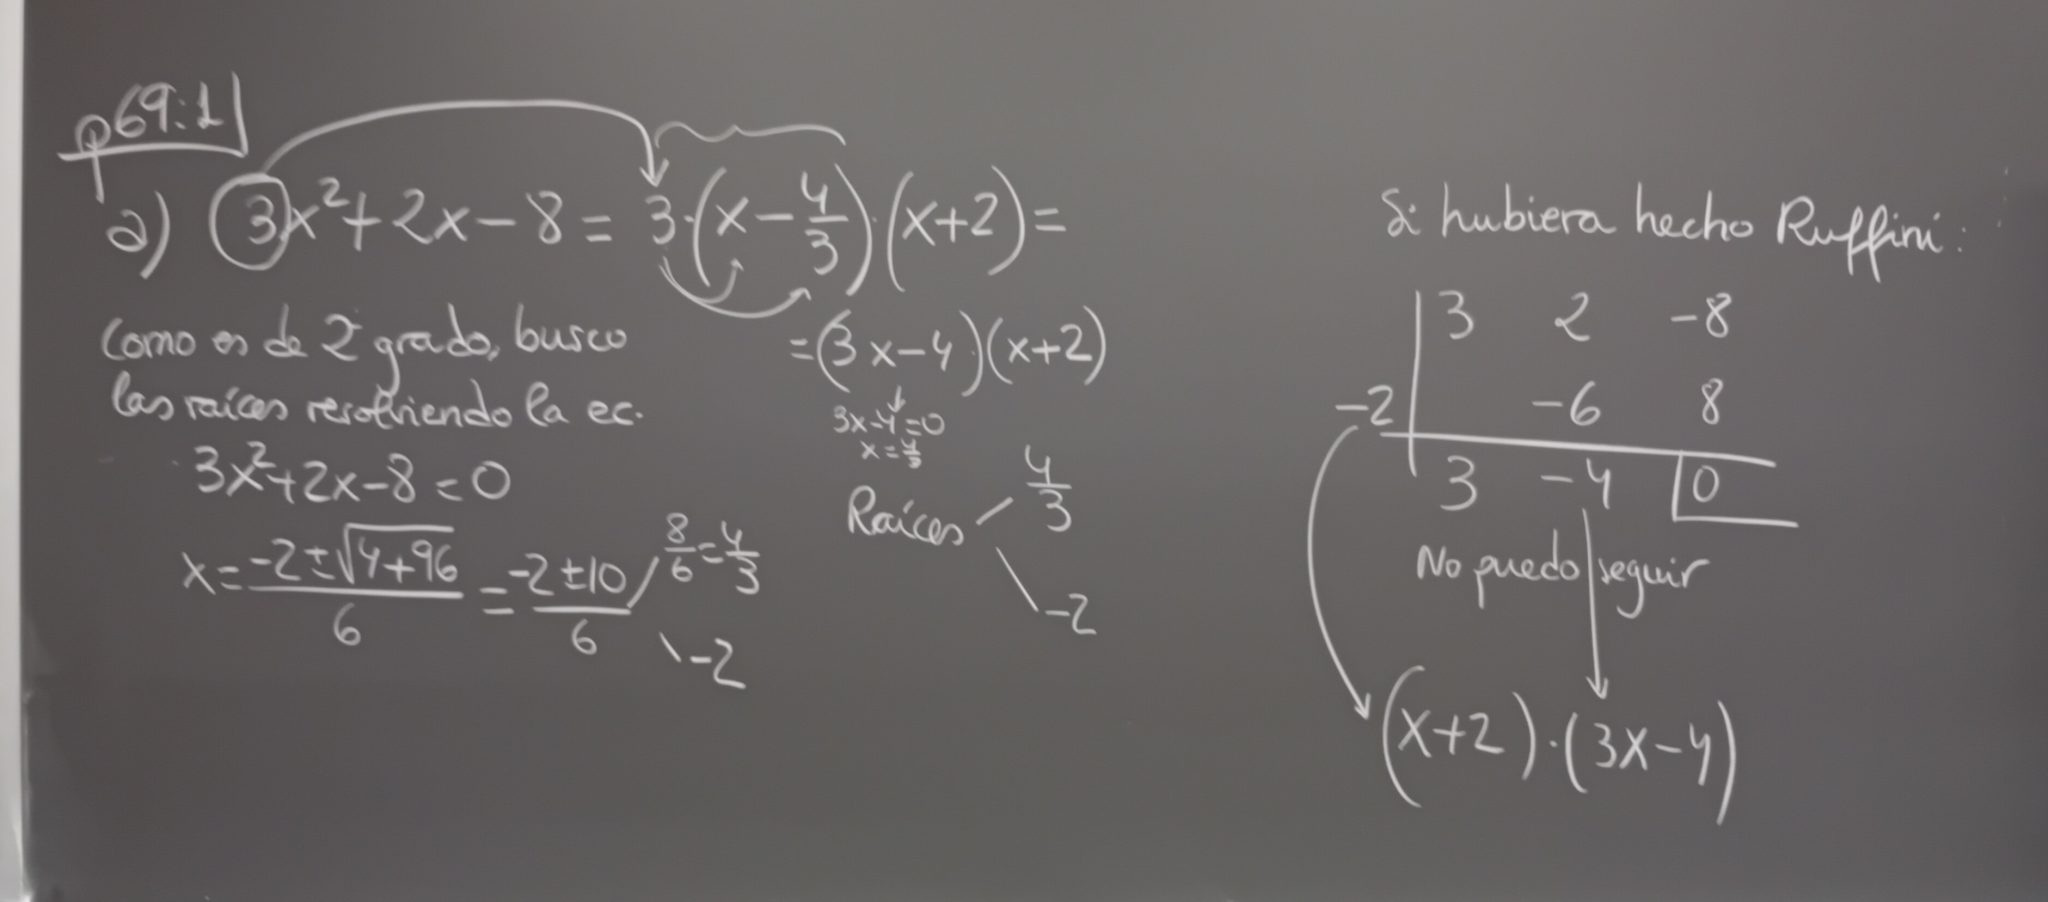 p69:1
a) 3x²+2x-8 = 3·(x-4/3)·(x+2)=
Como es de 2º grado, busco
las raíces resolviendo la ec.
3x²+2x-8=0
x = (-2±√(4+96))/6 = (-2±10)/6 / 8/6 = 4/3
\ -2
=(3x-4)·(x+2)
3x-4=0
x=4/3
Raíces / 4/3
\ -2
Si hubiera hecho Ruffini:
3 2 -8
-2 -6 8
3 -4 0
No puedo seguir
(x+2)·(3x-4)